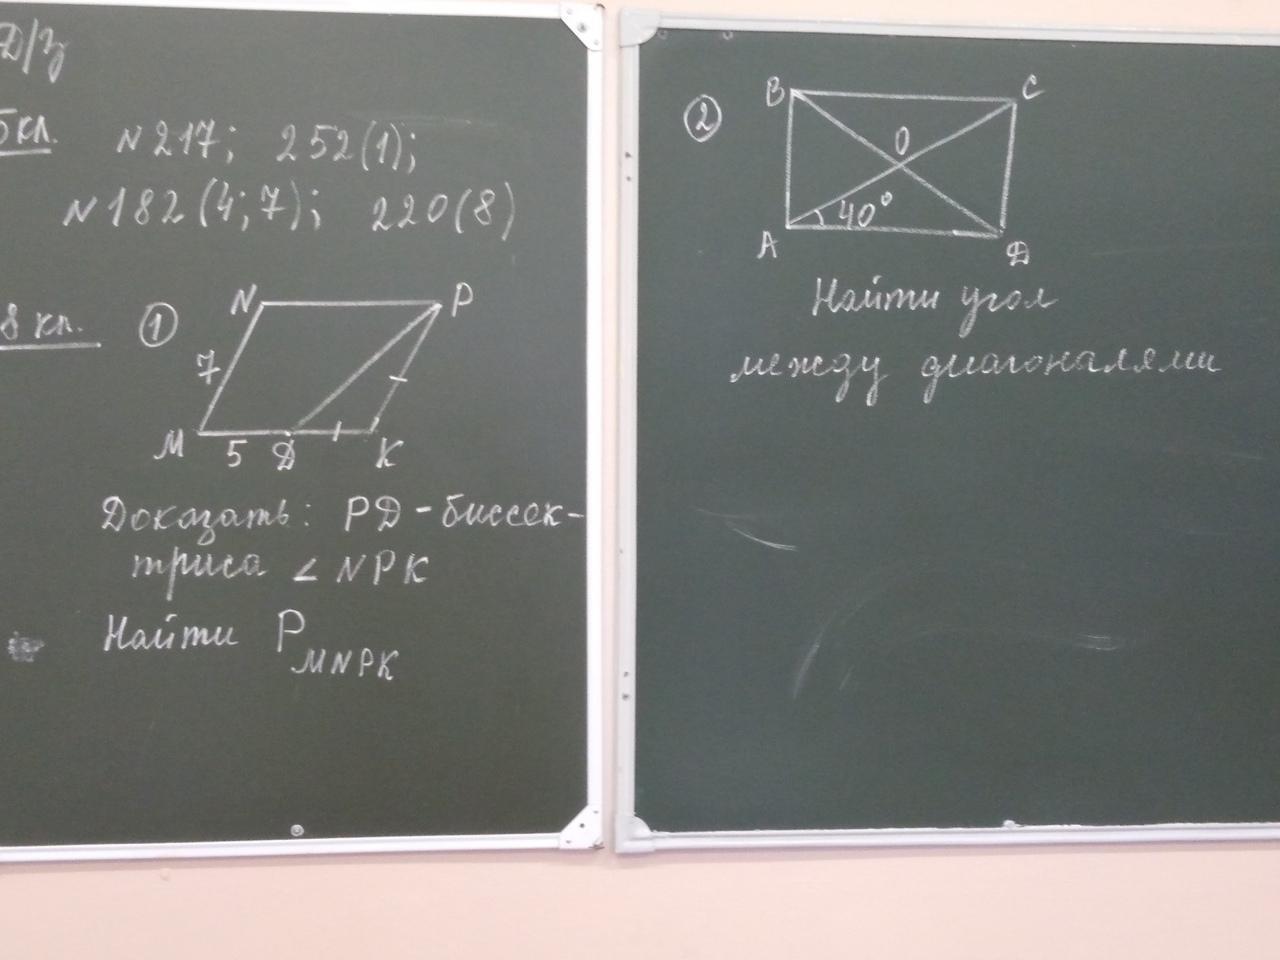 Д/з
5кл. №217; 252(1);
№182(4;7); 220(8)
8 кл. ①
N P
7
M 5 Д K
Доказать: РД - биссек-
триса ∠NPK
Найти P MNPK
②
B C
O
40°
A Д
Найти угол
между диагоналями